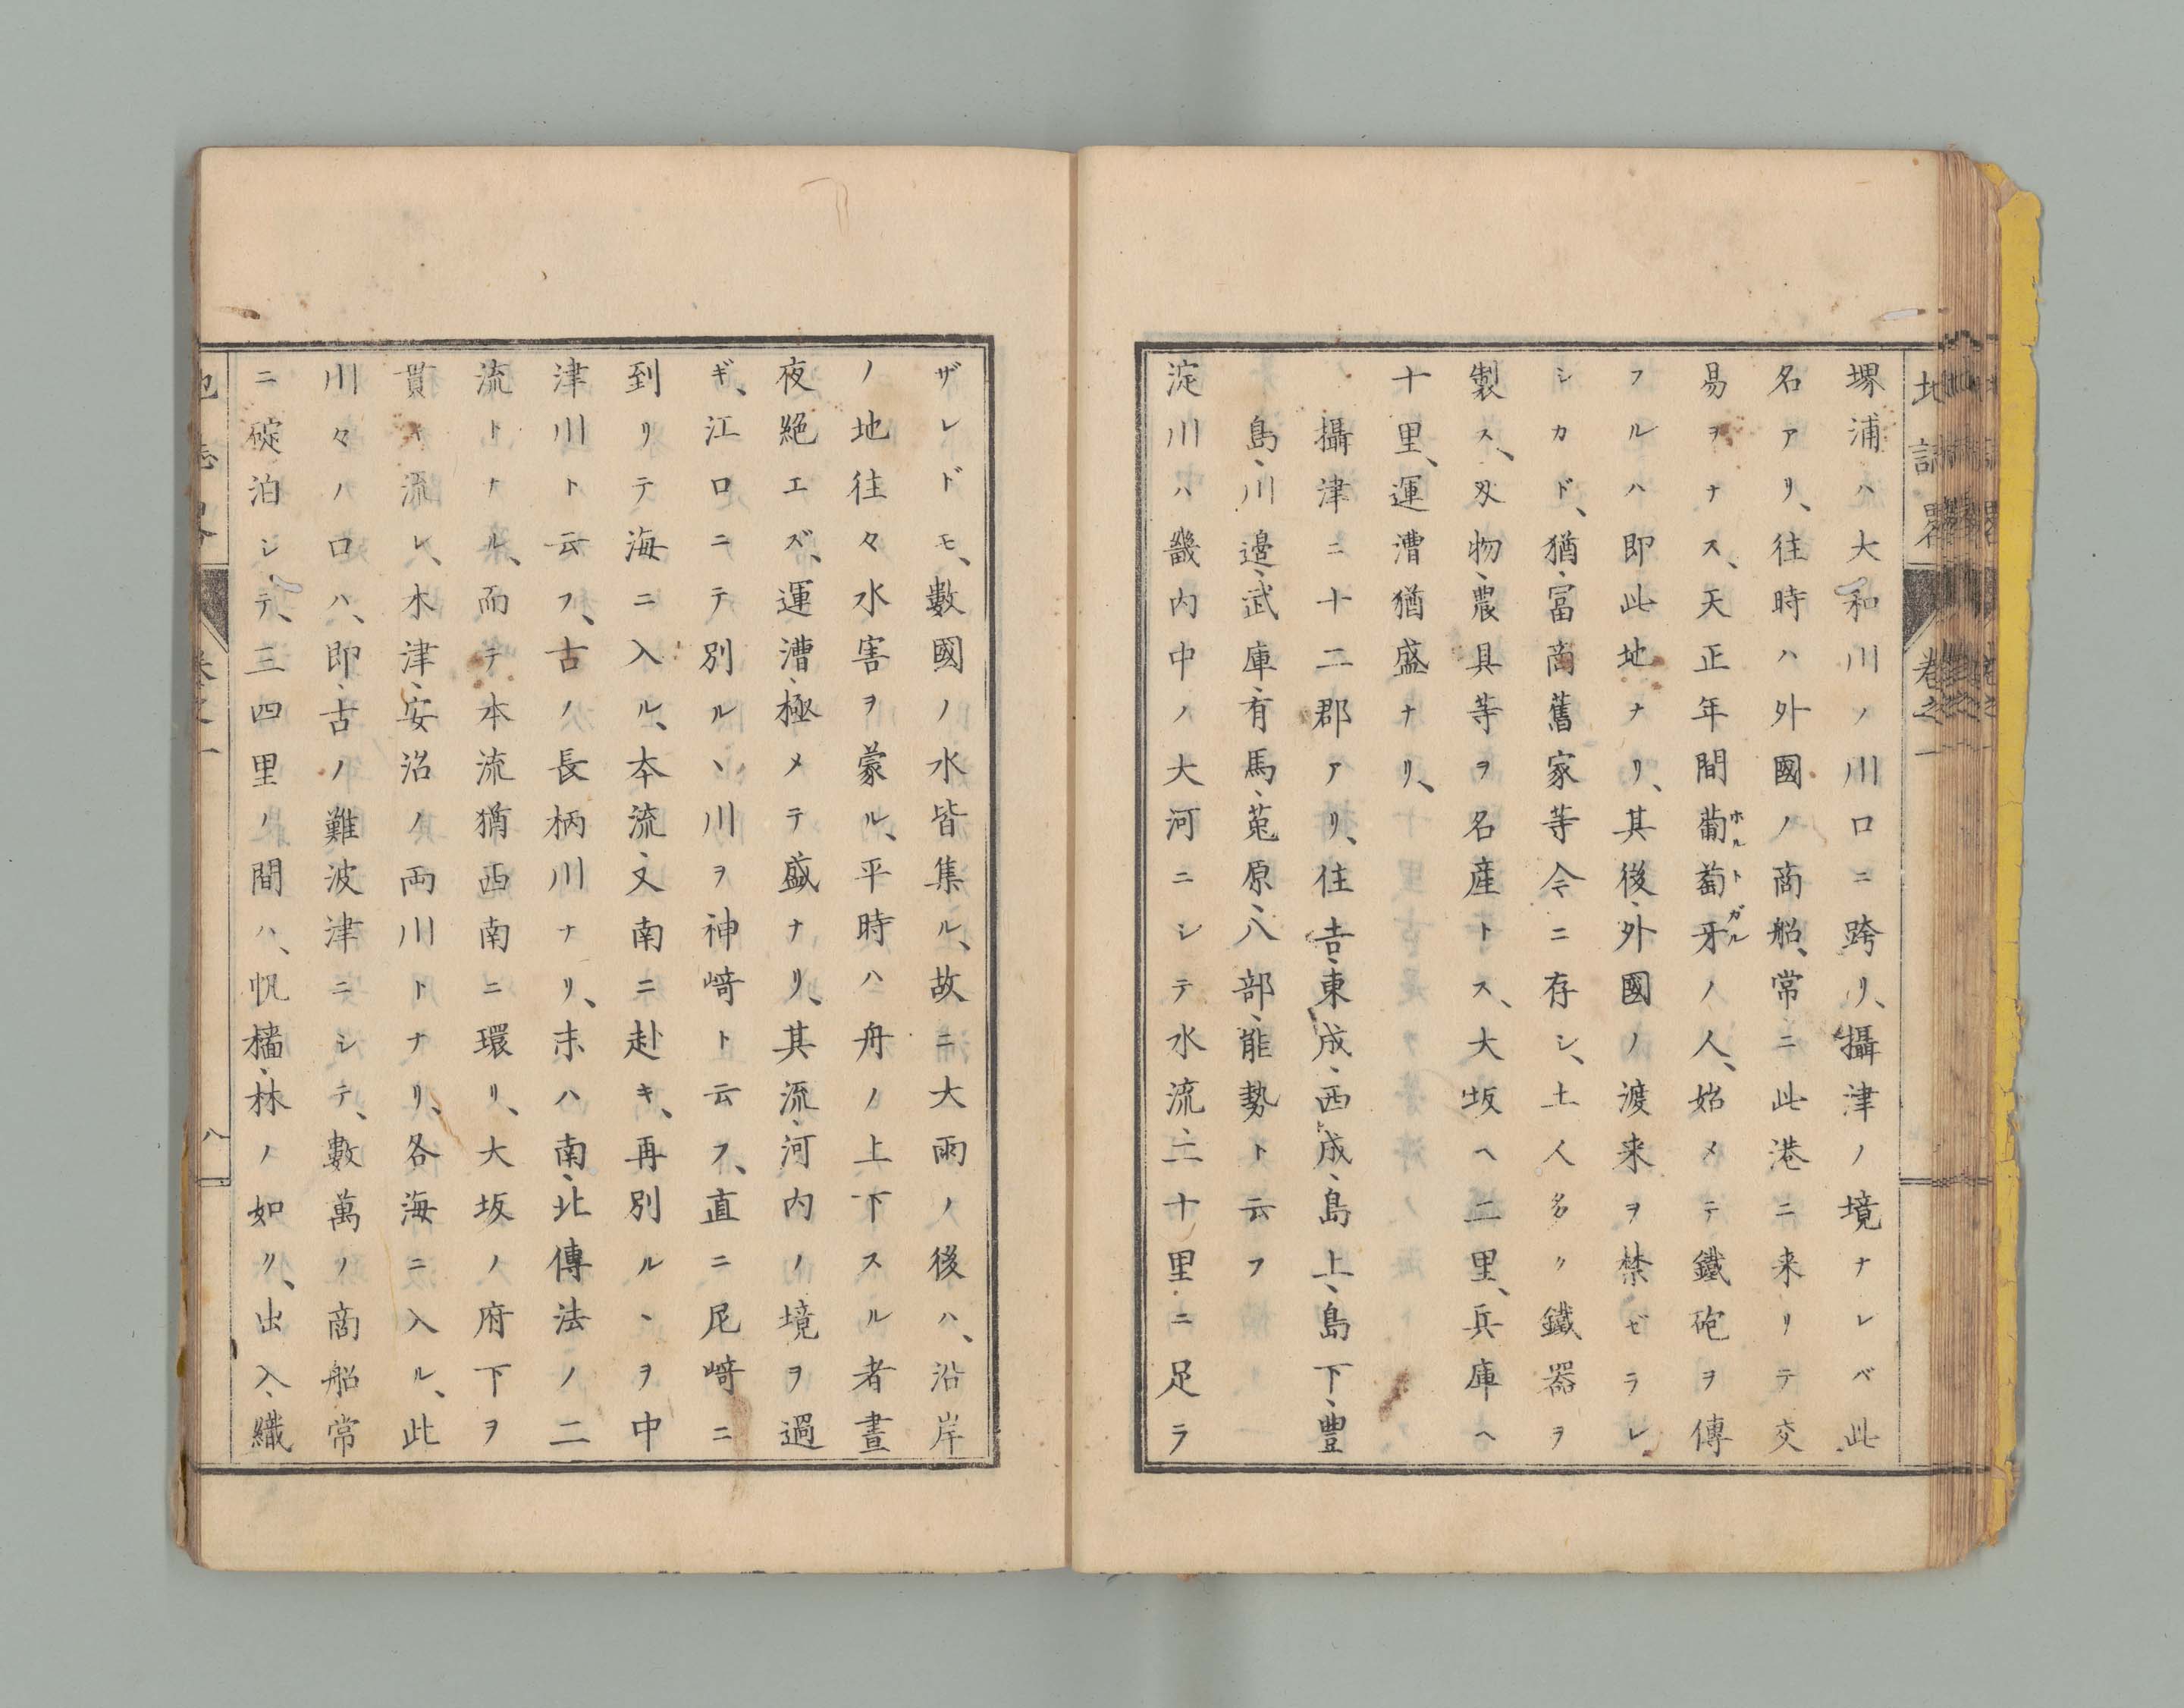 地誌畧 卷之一
堺浦ハ大和川ノ川口ニ跨リ、攝津ノ境ナレバ此
名アリ、往時ハ外國ノ商船、常ニ此港ニ来リテ交
易ヲナス、天正年間葡萄牙ノ人、始メテ鐵砲ヲ傳
ホルトガル
フルハ即此地ナリ、其後、外國ノ渡来ヲ禁ゼラレ
シカド、猶、富商舊家等今ニ存シ、土人多ク鐵器ヲ
製ス、刄物、農具等ヲ名産トス、大坂ヘ二里、兵庫ヘ
十里、運漕猶盛ナリ、
攝津ニ十二郡アリ、住吉、東成、西成、島上、島下、豐
島、川邉、武庫、有馬、莵原、八部、能勢ト云フ
淀川ハ畿内中ノ大河ニシテ水流、二十里ニ足ラ
ザレドモ、數國ノ水皆集ル、故ニ大雨ノ後ハ、沿岸
ノ地往々水害ヲ蒙ル、平時ハ舟ノ上下スル者晝
夜絶エズ、運漕、極メテ盛ナリ、其流、河内ノ境ヲ過
ギ、江口ニテ別ルヽ川ヲ神﨑ト云フ、直ニ尼﨑ニ
到リテ海ニ入ル、本流、又南ニ赴キ、再別ルヽヲ中
津川ト云フ、古ノ長柄川ナリ、末ハ南、北傳法ノ二
流トナル、而テ本流猶西南ニ環リ、大坂ノ府下ヲ
貫キ流レ、木津、安治ノ両川トナリ、各海ニ入ル、此
川々ノ口ハ、即、古ノ難波津ニシテ、數萬ノ商船常
ニ碇泊シテ、三四里ノ間ハ、帆檣、林ノ如ク、出入、織
地誌畧 卷之一 八